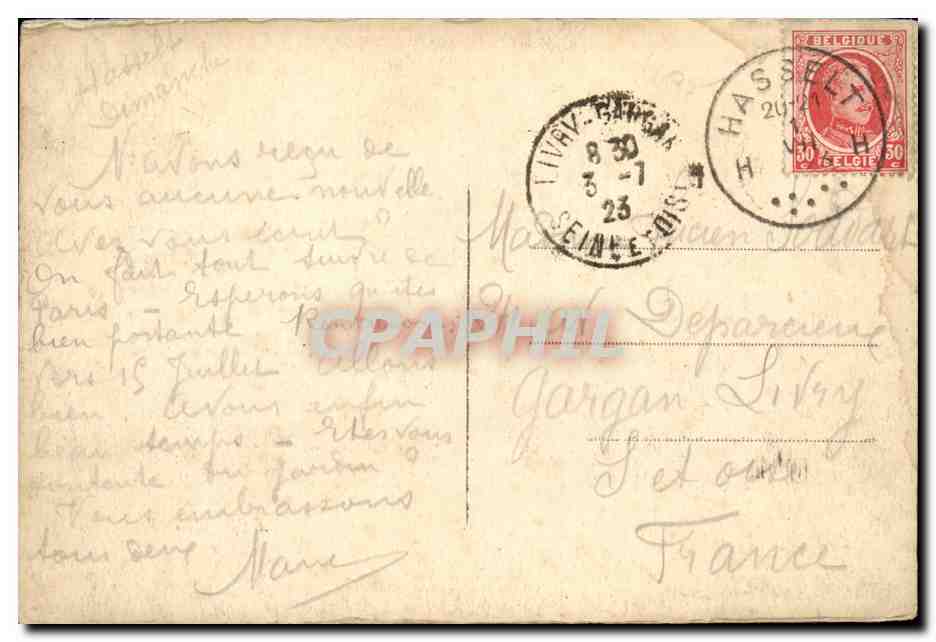 Hasselt
Dimanche
N'avons reçu de
vous aucune nouvelle
Avez vous écrit?
On fait tout suivre de
Paris - Espérons qu'êtes
bien portante. Rentrerons
vers 15 Juillet. Allons
bien. Avons enfin
beau temps. - Etes vous
contente du jardin?
Vous embrassons
tous deux.
Marie
LIVRY-GARGAN
8 30
3 -7
23
SEINE-ET-OISE
HASSELT
20-21
H H
BELGIQUE
30 30
BELGIE
CPAPHIL
Deparcieux
Gargan Livry
S et Oise
France